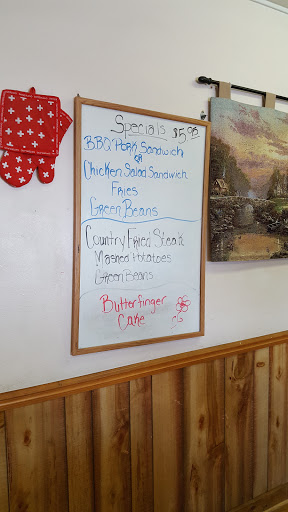 Specials $5.95
BBQ Pork Sandwich
or
Chicken Salad Sandwich
Fries
Green Beans
Country Fried Steak
Mashed Potatoes
Green Beans
Butterfinger
Cake